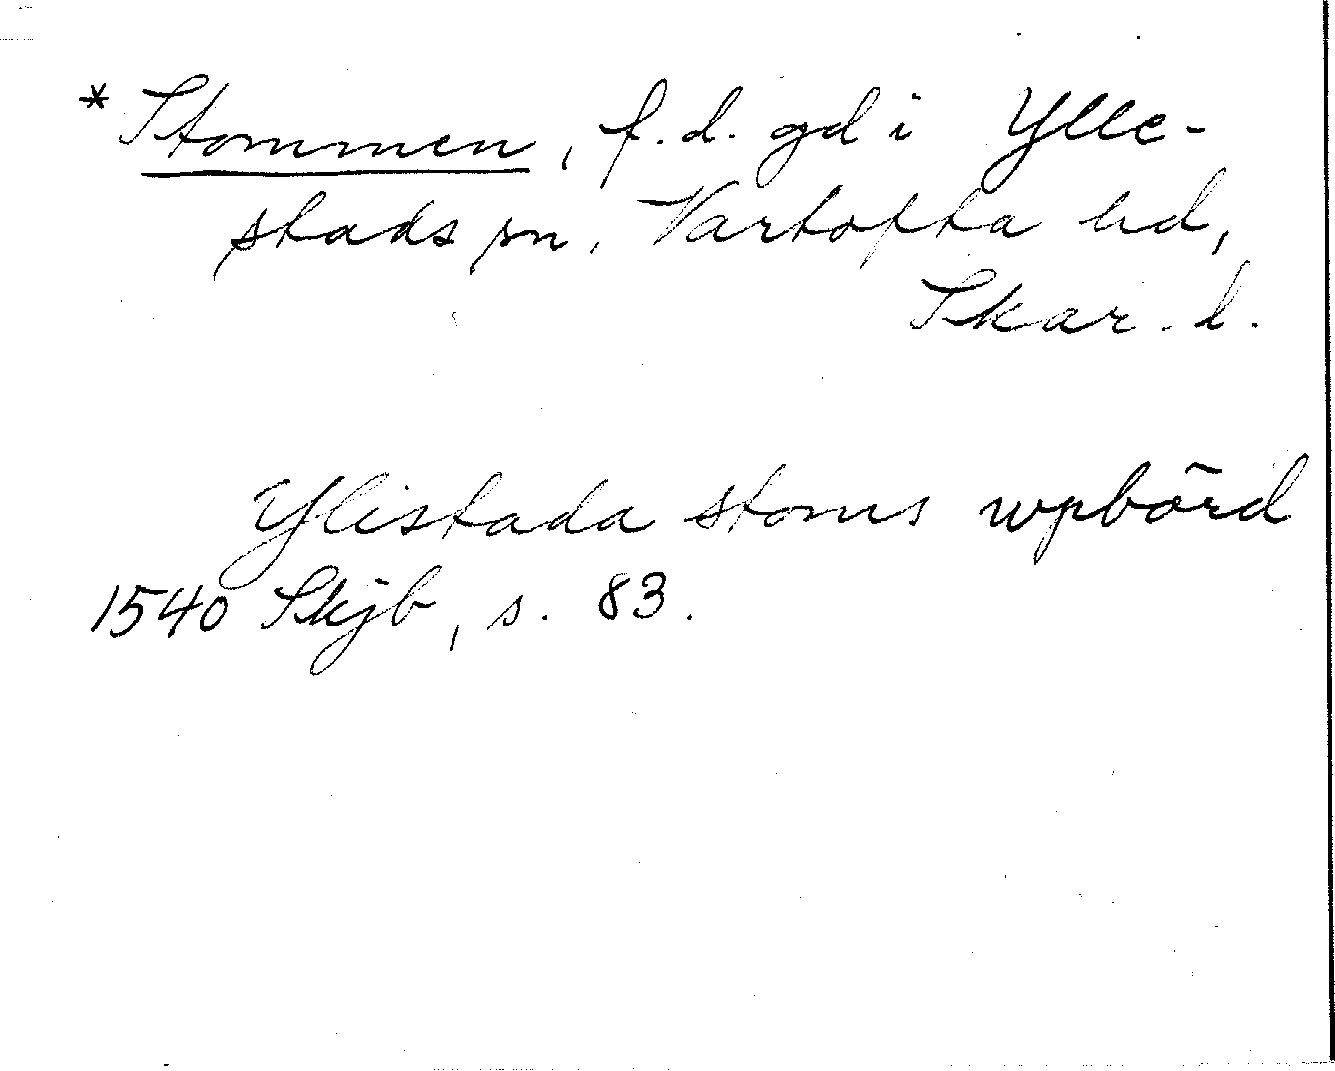 *Stommen, f.d. gd i Ylle-
stads sn, Vartofta hd,
Skar. l.
Ylistada stoms wpbörd
1540 Skjb, s. 83.